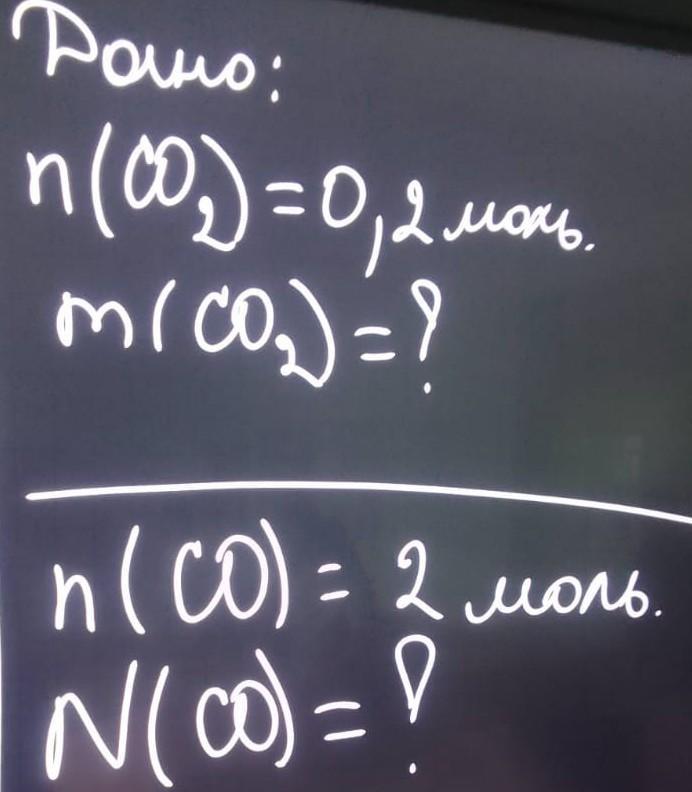 Дано:
n(CO₂)=0,2 моль.
m(CO₂)=?
n(CO)= 2 моль.
N(CO)=?